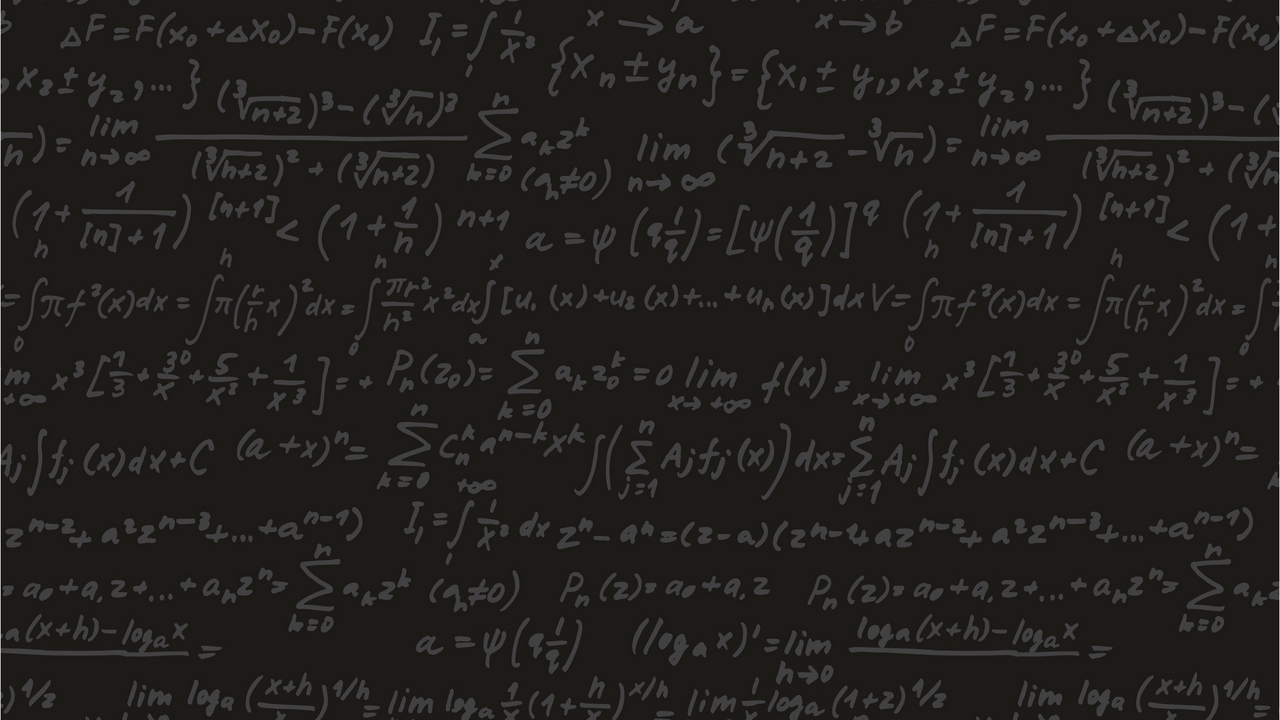 ΔF=F(x₀+Δx₀)-F(x₀) I₁=∫ 1/x³ x→a x→b ΔF=F(x₀+Δx₀)-F(x₀)
x₂±y₂,...} {xₙ±yₙ}={x₁±y₁,x₂±y₂,...}
n)= lim n→∞ ((∛n+2)³-(∛n)³)/((∛n+2)²+(∛n+2)) ∑ k=0 n aₖzᵏ (aₙ≠0) lim n→∞ (∛n+2-∛n)= lim n→∞ (∛n+2)³-( (∛n+2)²+(∛n
(1+1/([n]+1))[n+1] n < (1+1/n) n+1 a=ψ(q1/q)=[ψ(1/q)]q (1+1/([n]+1))[n+1] n < (1+
=∫₀πf²(x)dx=∫π(r/h x)²dx=∫₀ʰ πr²/h² x²dx∫ₐˣ[u₁(x)+u₂(x)+...+uₙ(x)]dx V=∫₀πf²(x)dx=∫ʰπ(r/h x)²dx=∫₀
+∞ x³[7/3+30/x+5/x²+1/x³]=+ Pₙ(z₀)=∑ k=0 n aₖz₀ᵏ=0 lim x→+∞ f(x)=lim x→+∞ x³[7/3+30/x+5/x²+1/x³]=+
Aⱼ∫fⱼ(x)dx+C (a+x)ⁿ=∑ k=0 n Cₙᵏaⁿ⁻ᵏxᵏ ∫(∑ j=1 n Aⱼfⱼ(x))dx=∑ j=1 n Aⱼ∫fⱼ(x)dx+C (a+x)ⁿ=
zⁿ⁻²+a²zⁿ⁻³+...+aⁿ⁻¹) I₁=∫₁ +∞ 1/x³ dx zⁿ-aⁿ=(z-a)(zⁿ⁻¹+azⁿ⁻²+a²zⁿ⁻³+...+aⁿ⁻¹)
=a₀+a₁z+...+aₙzⁿ=∑ k=0 n aₖzᵏ (aₙ≠0) Pₙ(z)=a₀+a₁z Pₙ(z)=a₀+a₁z+...+aₙzⁿ=∑ k=0 n aₖ
a(x+h)-logₐx = a=ψ(q1/q) (logₐx)'=lim h→0 loga(x+h)-logₐx =
)1/2 lim logₐ(x+h/x)1/h=lim logₐ1/x(1+h/x)x/h=lim 1/x logₐ(1+z)1/2 lim logₐ(x+h/x)1/h=